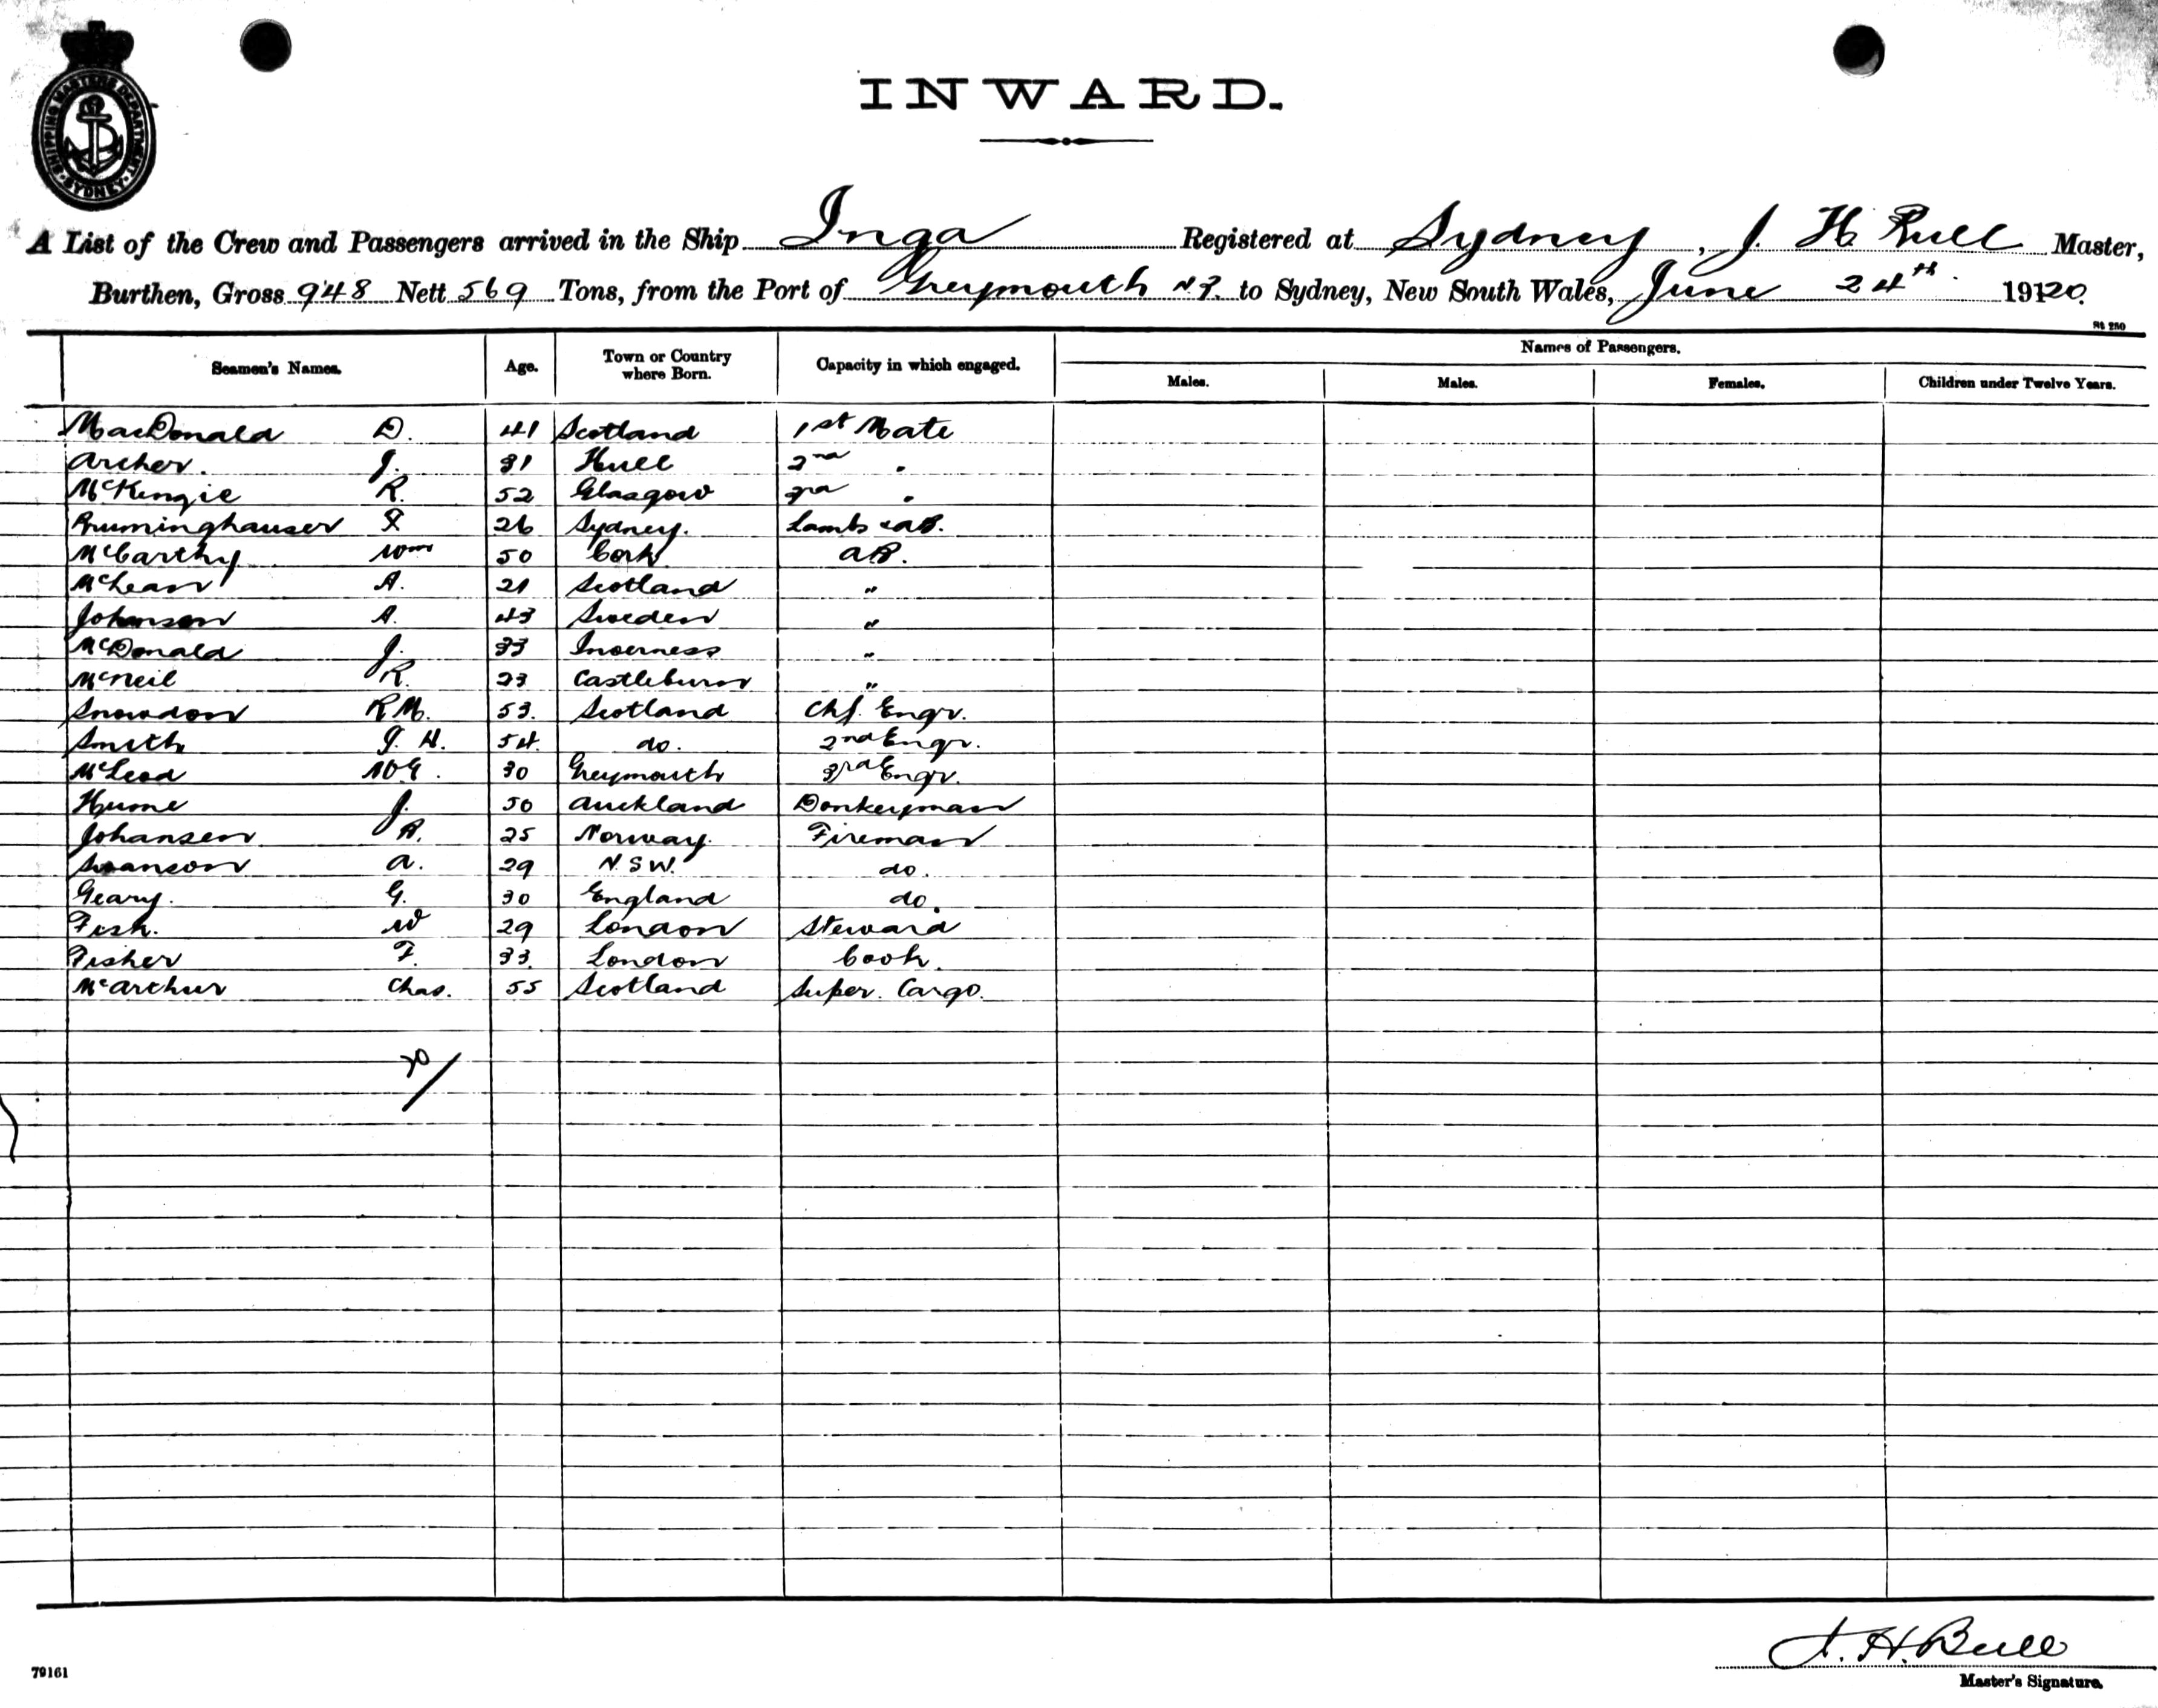 SHIPPING MASTERS DEPARTMENT SYDNEY
INWARD.
A List of the Crew and Passengers arrived in the Ship Inga Registered at Sydney, J. H. Bull Master,
Burthen, Gross 948 Nett 569 Tons, from the Port of Greymouth N.Z. to Sydney, New South Wales, June 24th 1920.
St 250
Seamen's Names. Age. Town or Country where Born. Capacity in which engaged. Names of Passengers.
Males. Males. Females. Children under Twelve Years.
MacDonald D. 41 Scotland 1st Mate
Archer. J. 31 Hull 2nd "
McKenzie R. 52 Glasgow 3rd "
Bruminghauser F 26 Sydney. Lamps & AB.
McCarthy Wm 50 Cork AB.
McLean A. 21 Scotland "
Johanson A. 43 Sweden "
McDonald J. 33 Inverness "
McNeil R. 23 "
Snowdon R.M. 53. Scotland Chf. Engr.
Smith J. H. 54. do. 2nd Engr.
McLeod 30 Greymouth 3rd Engr.
Hume J. 50 Auckland Donkeyman
Johansen A. 25 Norway. Fireman
Swanson A. 29 N.S.W. do.
Geary. G. 30 England do.
Fish. W 29 London Steward
Fisher F. 33. London Cook.
McArthur Chas. 55 Scotland Super. Cargo.
20/
J. H. Bull
Master's Signature.
79161